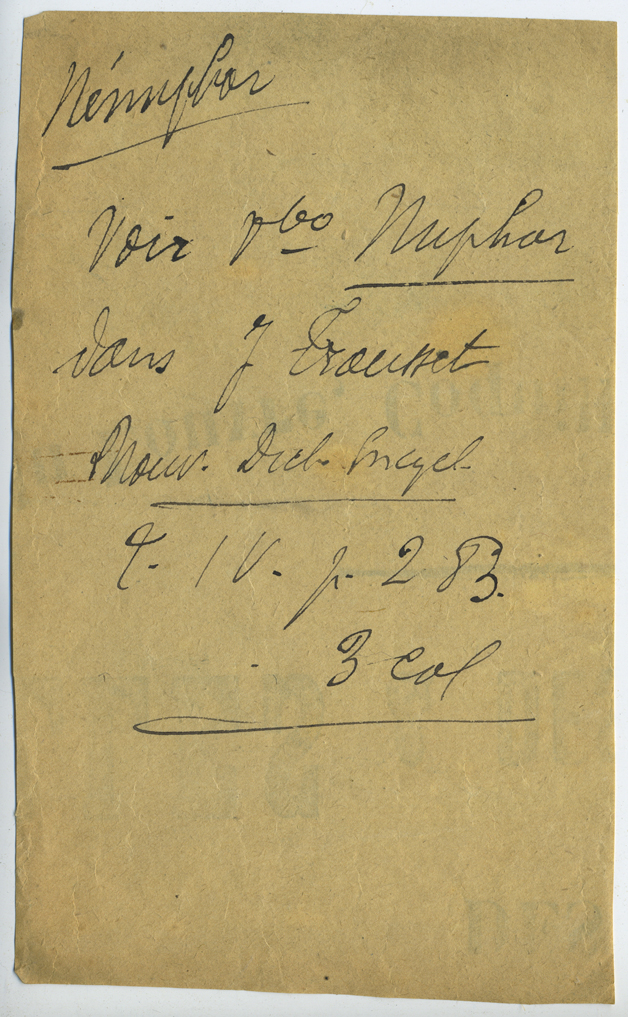 Nénuphar
Voir vbo Nuphar
dans J Trousset
Nouv. Dict. Encycl.
t. IV. p. 283.
3 col